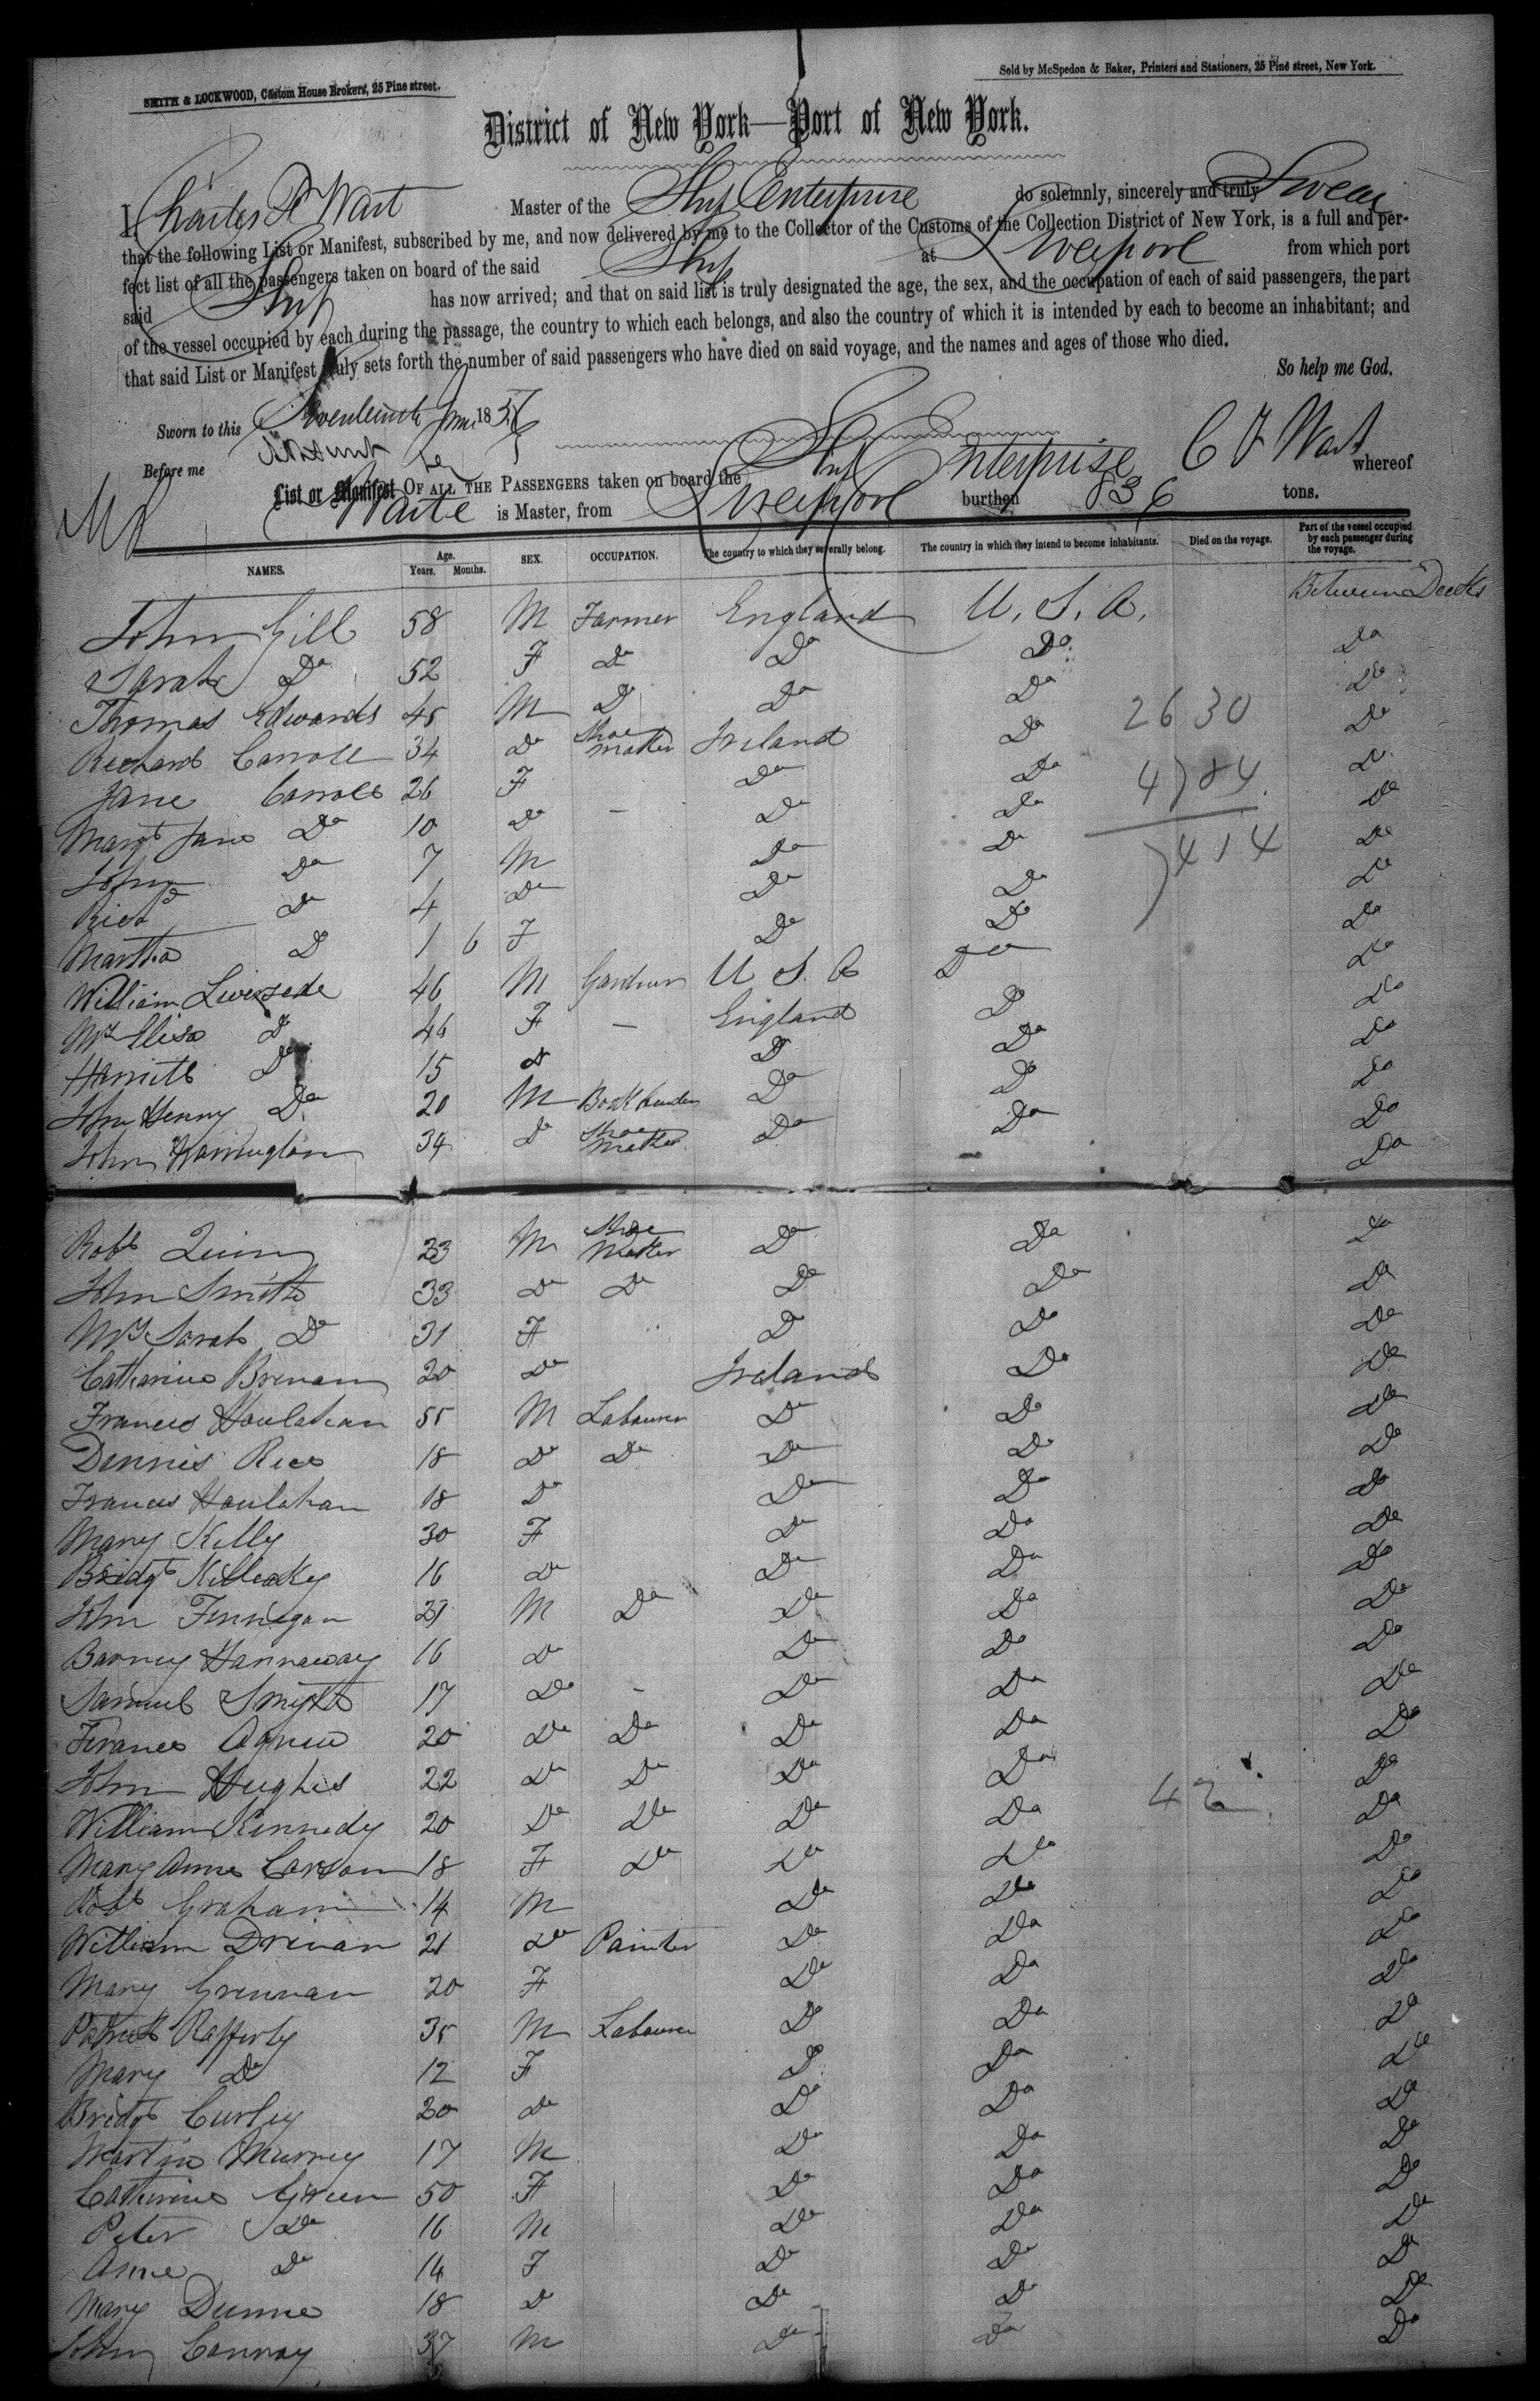 SMITH & LOCKWOOD, Custom House Brokers, 25 Pine street.
Sold by McSpedon & Baker, Printers and Stationers, 25 Pine street, New York.
District of New York—Port of New York.
I Charles F Wait Master of the Ship Enterprise do solemnly, sincerely and truly Swear
that the following List or Manifest, subscribed by me, and now delivered by me to the Collector of the Customs of the Collection District of New York, is a full and per-
fect list of all the passengers taken on board of the said Ship at Liverpool from which port
said Ship has now arrived; and that on said list is truly designated the age, the sex, and the occupation of each of said passengers, the part
of the vessel occupied by each during the passage, the country to which each belongs, and also the country of which it is intended by each to become an inhabitant; and
that said List or Manifest truly sets forth the number of said passengers who have died on said voyage, and the names and ages of those who died.
So help me God.
Sworn to this Seventeenth June 185
Before me C F Wait
List or Manifest OF ALL THE PASSENGERS taken on board the Ship Enterprise whereof
Waite is Master, from Liverpool burthen 836 tons.
NAMES. Age. Years. Months. SEX. OCCUPATION. The country to which they severally belong. The country in which they intend to become inhabitants. Died on the voyage. Part of the vessel occupied by each passenger during the voyage.
John Gill 58 M Farmer England U.S.A. Between Decks
Sarah Do 52 F Do Do Do Do
Thomas Edwards 45 M Do Do Do 2630 Do
Richard Carroll 34 Do Shoe maker Ireland Do Do
Jane Carroll 26 F Do Do 4)84 Do
Margt Jane Do 10 Do — Do Do Do
John Do 7 M Do Do )414 Do
Richd Do 4 Do Do Do Do
Martha Do 1 6 F Do Do Do
William Livesede 46 M Gardner U S. A Do Do
Mrs Eliza Do 46 F — England Do Do
Harriett Do 15 Do Do Do Do
John Henry Do 20 M Book binder Do Do Do
John Warrington 34 Do Shoe Maker Do Do Do
Robt Quinn 23 M Shoe Maker Do Do Do
John Smith 33 Do Do Do Do Do
Mrs Sarah Do 31 F Do Do Do
Catharine Brenan 20 Do Ireland Do Do
Francis Houlahan 55 M Labourer Do Do Do
Dennis Rice 18 Do Do Do Do Do
Francis Houlahan 18 Do Do Do Do
Mary Kelly 30 F Do Do Do
Bridgt Killeaky 16 Do Do Do Do
John Finnegan 21 M Do Do Do Do
Barney Hannaway 16 Do Do Do Do
Samuel Smyth 17 Do - Do Do Do
Francis Agnew 20 Do Do Do Do Do
John Hughes 22 Do Do Do Do 42 Do
William Kennedy 20 Do Do Do Do Do
Mary Anne Carson 18 F Do Do Do Do
Robt Graham 14 M Do Do Do
William Drenan 21 Do Painter Do Do Do
Mary Grennan 20 F Do Do Do
Patrick Rafferty 35 M Labourer Do Do Do
Mary Do 12 F Do Do Do
Bridgt Curley 20 Do Do Do Do
Martin Murrey 17 M Do Do Do
Catherine Green 50 F Do Do Do
Peter Do 16 M Do Do Do
Anne Do 14 F Do Do Do
Mary Dunne 18 Do Do Do Do
John Conroy 37 M Do Do Do